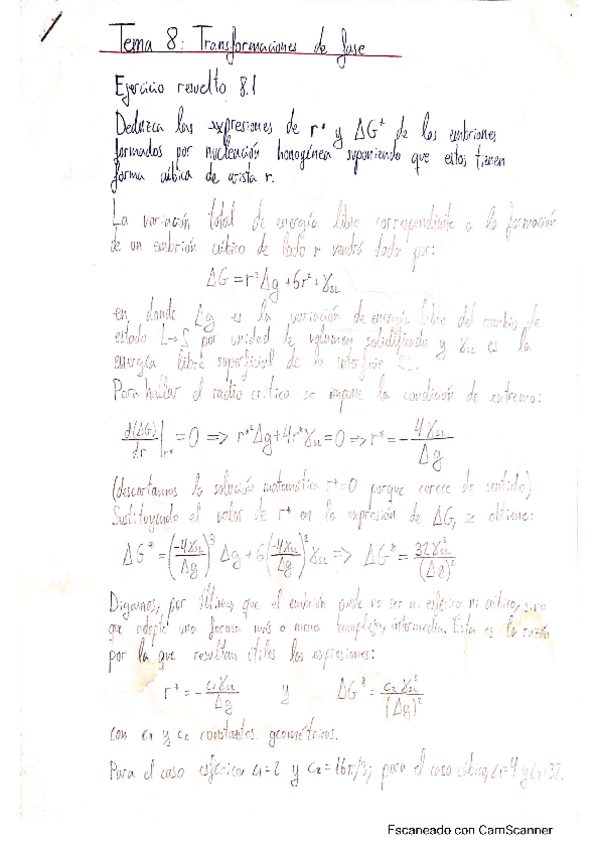 Tema 8: Transformaciones de fase
Ejercicio resuelto 8.1
Deduzca las expresiones de r* y ΔG* de los embriones
formados por nucleación homogénea suponiendo que estos tienen
forma cúbica de arista r.
La variación total de energía libre correspondiente a la formación
de un embrión cúbico de lado r vendrá dada por:
ΔG = r³Δg + 6r² + γSL
en donde Δg es la variación de energía libre del cambio de
estado L→S por unidad de volumen solidificado y γSL es la
energía libre superficial de la interfase SL.
Para hallar el radio crítico se impone la condición de extremo:
d(ΔG)/dr |r* = 0 => r*²Δg + 4r*γSL = 0 => r* = - 4γSL/Δg
(descartamos la solución matemática r*=0 porque carece de sentido)
Sustituyendo el valor de r* en la expresión de ΔG, se obtiene:
ΔG* = (-4γSL/Δg)³ Δg + 6(-4γSL/Δg)² γSL => ΔG* = 32γSL³/(Δg)²
Digamos, por último, que el embrión puede no ser ni esférico ni cúbico, sino
que adopte una forma más o menos compleja, intermedia. Esta es la razón
por la que resultan útiles las expresiones:
r* = - c₁γSL/Δg y ΔG* = c₂γSL³/(Δg)²
con c₁ y c₂ constantes geométricas.
Para el caso esférico c₁=2 y c₂=16π/3; para el caso cúbico, c₁=4 y c₂=32.
Escaneado con CamScanner